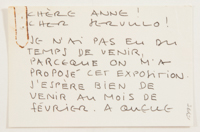 CHÈRE ANNE!
CHER
JE N'AI PAS EU DU
TEMPS DE VENIR,
PARCEQUE ON M'A
PROPOSÉ CET EXPOSITION.
J'ESPÈRE BIEN DE
VENIR AU MOIS DE
FÉVRIER. A